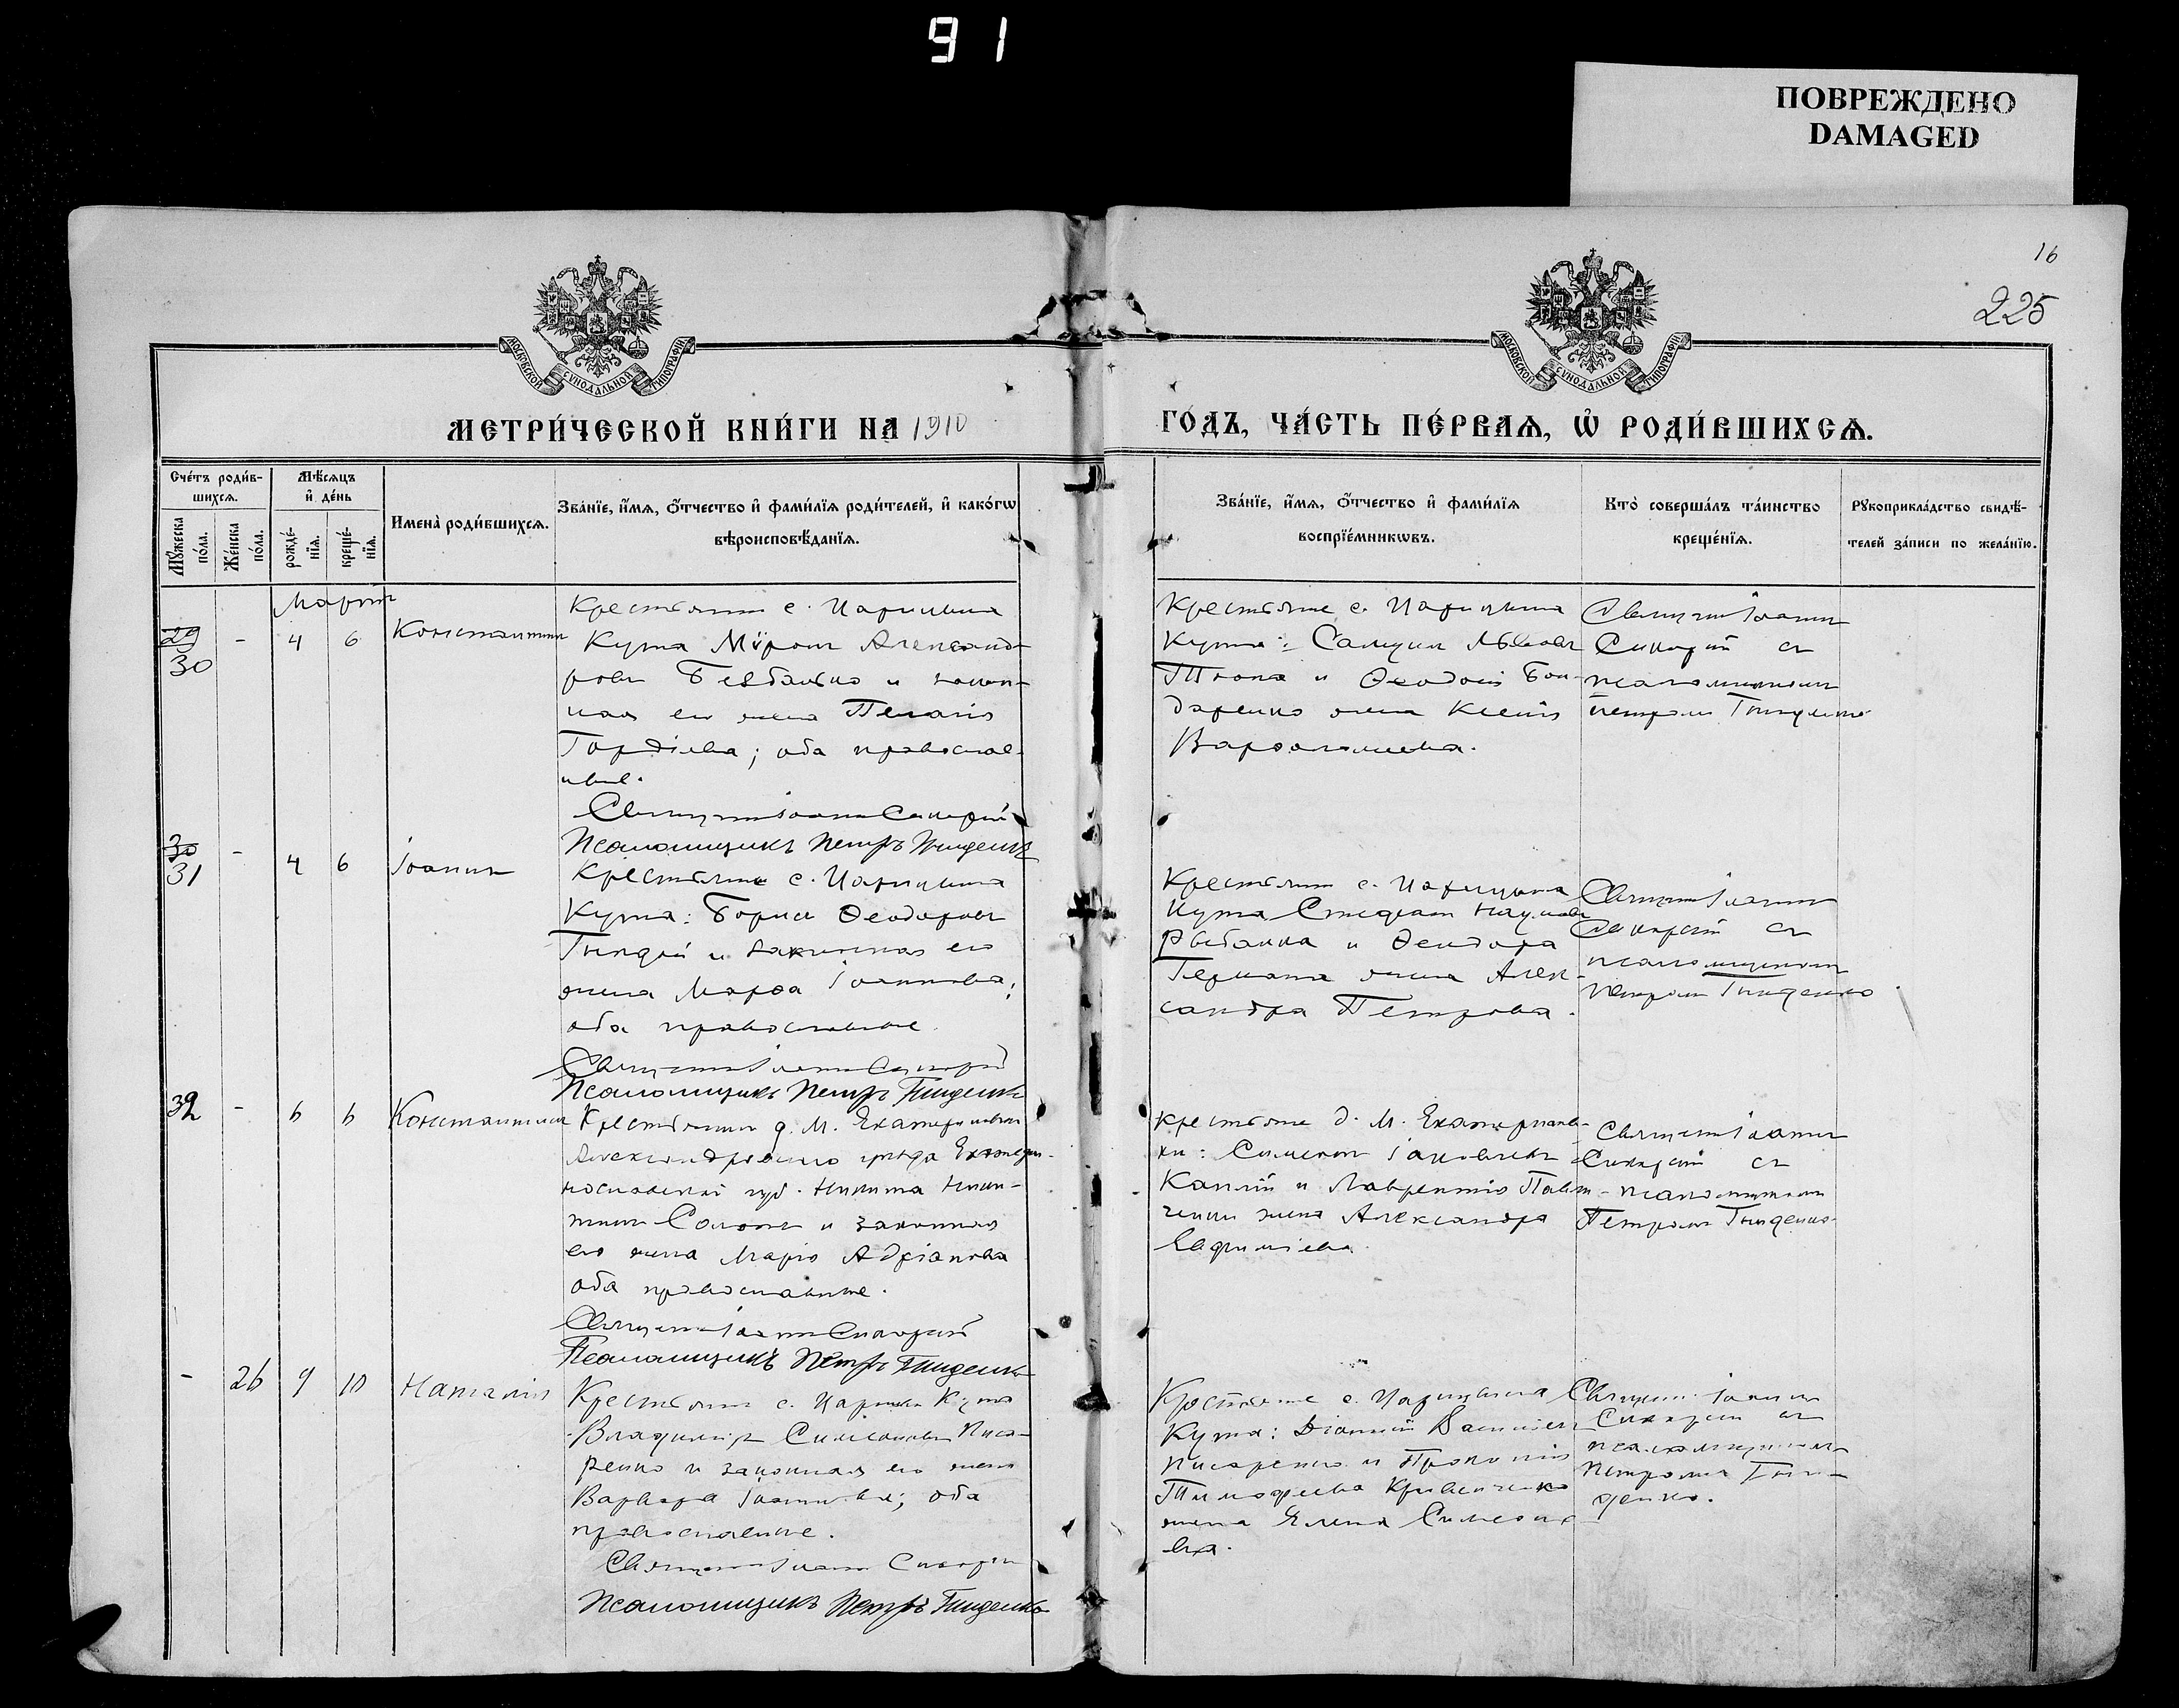 91
ПОВРЕЖДЕНО
DAMAGED
16
225
МОСКОВСКОЙ СѴНОДАЛЬНОЙ ТИПОГРАФІИ
МОСКОВСКОЙ СѴНОДАЛЬНОЙ ТИПОГРАФІИ
МЕТРИ́ЧЕСКОЙ КНИ́ГИ НА 1910
ГО́ДЪ, ЧА́СТЬ ПЕ́РВАѦ, Ѡ҆ РОДИ́ВШИХСѦ.
Сче́тъ роди́в-
шихсѧ.
Мꙋ́жеска по́ла.
Же́нска по́ла.
Мѣ́сѧцъ
и҆ де́нь
рожде́-
нїѧ.
креще́-
нїѧ.
Имена̀ роди́вшихсѧ.
Зва́нїе, и҆́мѧ, ѻ҆́тчество и҆ фами́лїѧ роди́телей, и҆ како́гѡ
вѣроисповѣ́данїѧ.
Зва́нїе, и҆́мѧ, ѻ҆́тчество и҆ фами́лїѧ
воспрїе́мникѡвъ.
Кто̀ соверша́лъ та́инство
креще́нїѧ.
Рꙋкоприкла́дство свидѣ́-
телей за́писи по жела́нїю.
Мартъ
29
30
-
4
6
Константинъ
Крестьянинъ с. Царицына
Кута Мѵронъ Александ-
ровъ и закон-
ная его жена Пелагія
Гордіева; оба православ-
ные.
Священникъ Іоаннъ
Псаломщикъ Петръ Гниденко
Крестьяне с. Царицына
Кута: Самуилъ
и Ѳеодосія Бон-
даренко жена Ксенія
Варѳоломеева.
Священникъ Іоаннъ
съ
псаломщикомъ
Петромъ Гниденко
30
31
-
4
6
Іоаннъ
Крестьянинъ с. Царицына
Кута: Борисъ Ѳеодоровъ
и законная его
жена Марѳа Іоаннова;
оба православные.
Священникъ Іоаннъ
Псаломщикъ Петръ Гниденко
Крестьяне с. Царицына
Кута Стефанъ Наумовъ
Рыбалка и Ѳеодора
жена Алек-
сандра Петрова.
Священникъ Іоаннъ
съ
псаломщикомъ
Петромъ Гниденко
32
-
6
6
Константинъ
Крестьянинъ д. М. Екатериновки
Александровскаго уѣзда Екатери-
нославской губ. Никита Ники-
тинъ и законная
его жена Марія Адріанова
оба православные.
Священникъ Іоаннъ
Псаломщикъ Петръ Гниденко
Крестьяне д. М. Екатеринов-
ки: Симеонъ Іаковлевъ
и Лаврентія
жена Александра
Евфиміева.
Священникъ Іоаннъ
съ
псаломщикомъ
Петромъ Гниденко
-
26
9
10
Наталія
Крестьянинъ с. Царицына Кута
Владиміръ Симеоновъ Писа-
ренко и законная его жена
Варвара Іоаннова; оба
православные.
Священникъ Іоаннъ
Псаломщикъ Петръ Гниденко
Крестьяне с. Царицына
Кута: Діонисій Васильевъ
Писаренко и
Тимофеева
жена Елена Симеоно-
ва.
Священникъ Іоаннъ
съ
псаломщикомъ
Петромъ Гни-
денко.